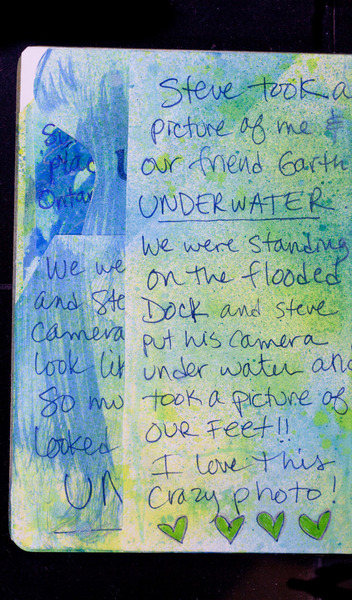 We we
and Ste
camera
look lik
So mu
looked
UN
Steve took a
picture of me &
our friend Garth
UNDERWATER
We were standing
on the flooded
Dock and Steve
put his camera
under water and
took a picture of
OUR FEET!!
I love this
crazy photo!